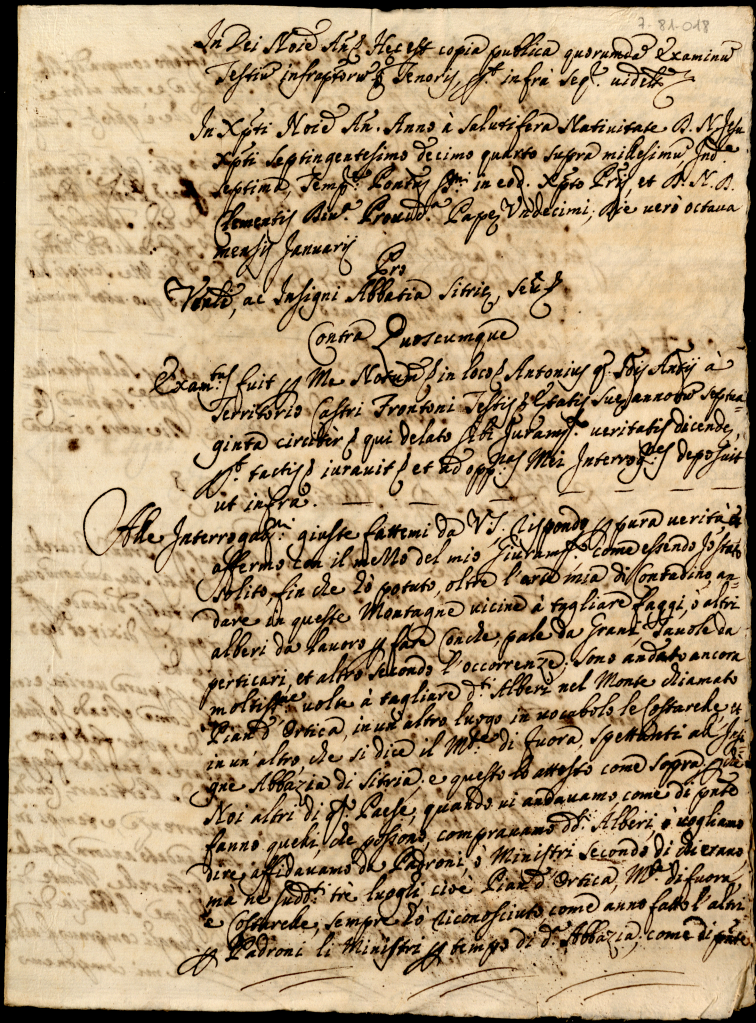 7-81-018
In Dei Noie Am̃. Hec est copia publica quorumdã Examinũ
Testiũ infraptorũ Tenoris, pt. infra seqr. videlt.
In Xpti Noie Am. Anno à Salutifera Nativitate D. N. Jesu
Xpti Septingentesimo decimo quarto supra millesimũ Indne
septima, Tempe. Pontus Smi in eod. Xpto Pris, et D. N. D.
Clementis Diva. Provida. Papę Undecimi; Die verò octava
mensis Januarij
Pro
Venli, ac Insigni Abbatia Sitrie,
Contra Quoscumque
Examtus fuit p Me Notum in loco Antonius q. Antij à
Territorio Castri Frontoni Testis Etatis suę annorũ septua=
ginta circiter qui delato sibi Juramto. veritatis dicendę,
pt. tactis iuravit et ad oppnas Mei Interrognes deposuit
ut infra. — — — — —
Alle Interrogatni. giuste fattemi da V.S. rispondo p pura verità et
affermo con il mezzo del mio Giuramto. come essendo Io stato
solito, sin che hò potuto, oltre l'arte mia di Contadino, an=
dare in queste Montagne vicine à tagliare faggi, ò altri
alberi da lavoro p fare Conche, pale da Grani, Tavole da
perticari, et altro secondo l'occorrenze. Sono andato ancora
moltissme volte à tagliare d.i Alberi nel Monte chiamato
Pian d'Ortica, in un'altro luogo in vocabolo le Costarelle, et
in un'altro, che si dice il Mte di fuora, spettanti all'Insi=
gne Abbazia di Sitria: e questo lo attesto come sopra.
Noi altri di qto. Paese, quando vi andavamo, come di pnte
fanno quelli, che possono, compravamo dd.i Alberi, ò vogliamo
dire affidavamo da Padroni, ò Ministri secondo di chi erano
mà ne sudd.i trè luoghi cioè Pian d'Ortica, Mte. di fuora,
e Costarelle, sempre hò riconosciuto come anno fatto l'altri
p Padroni li Ministri p tempo di d.a Abbazia, come di pnte